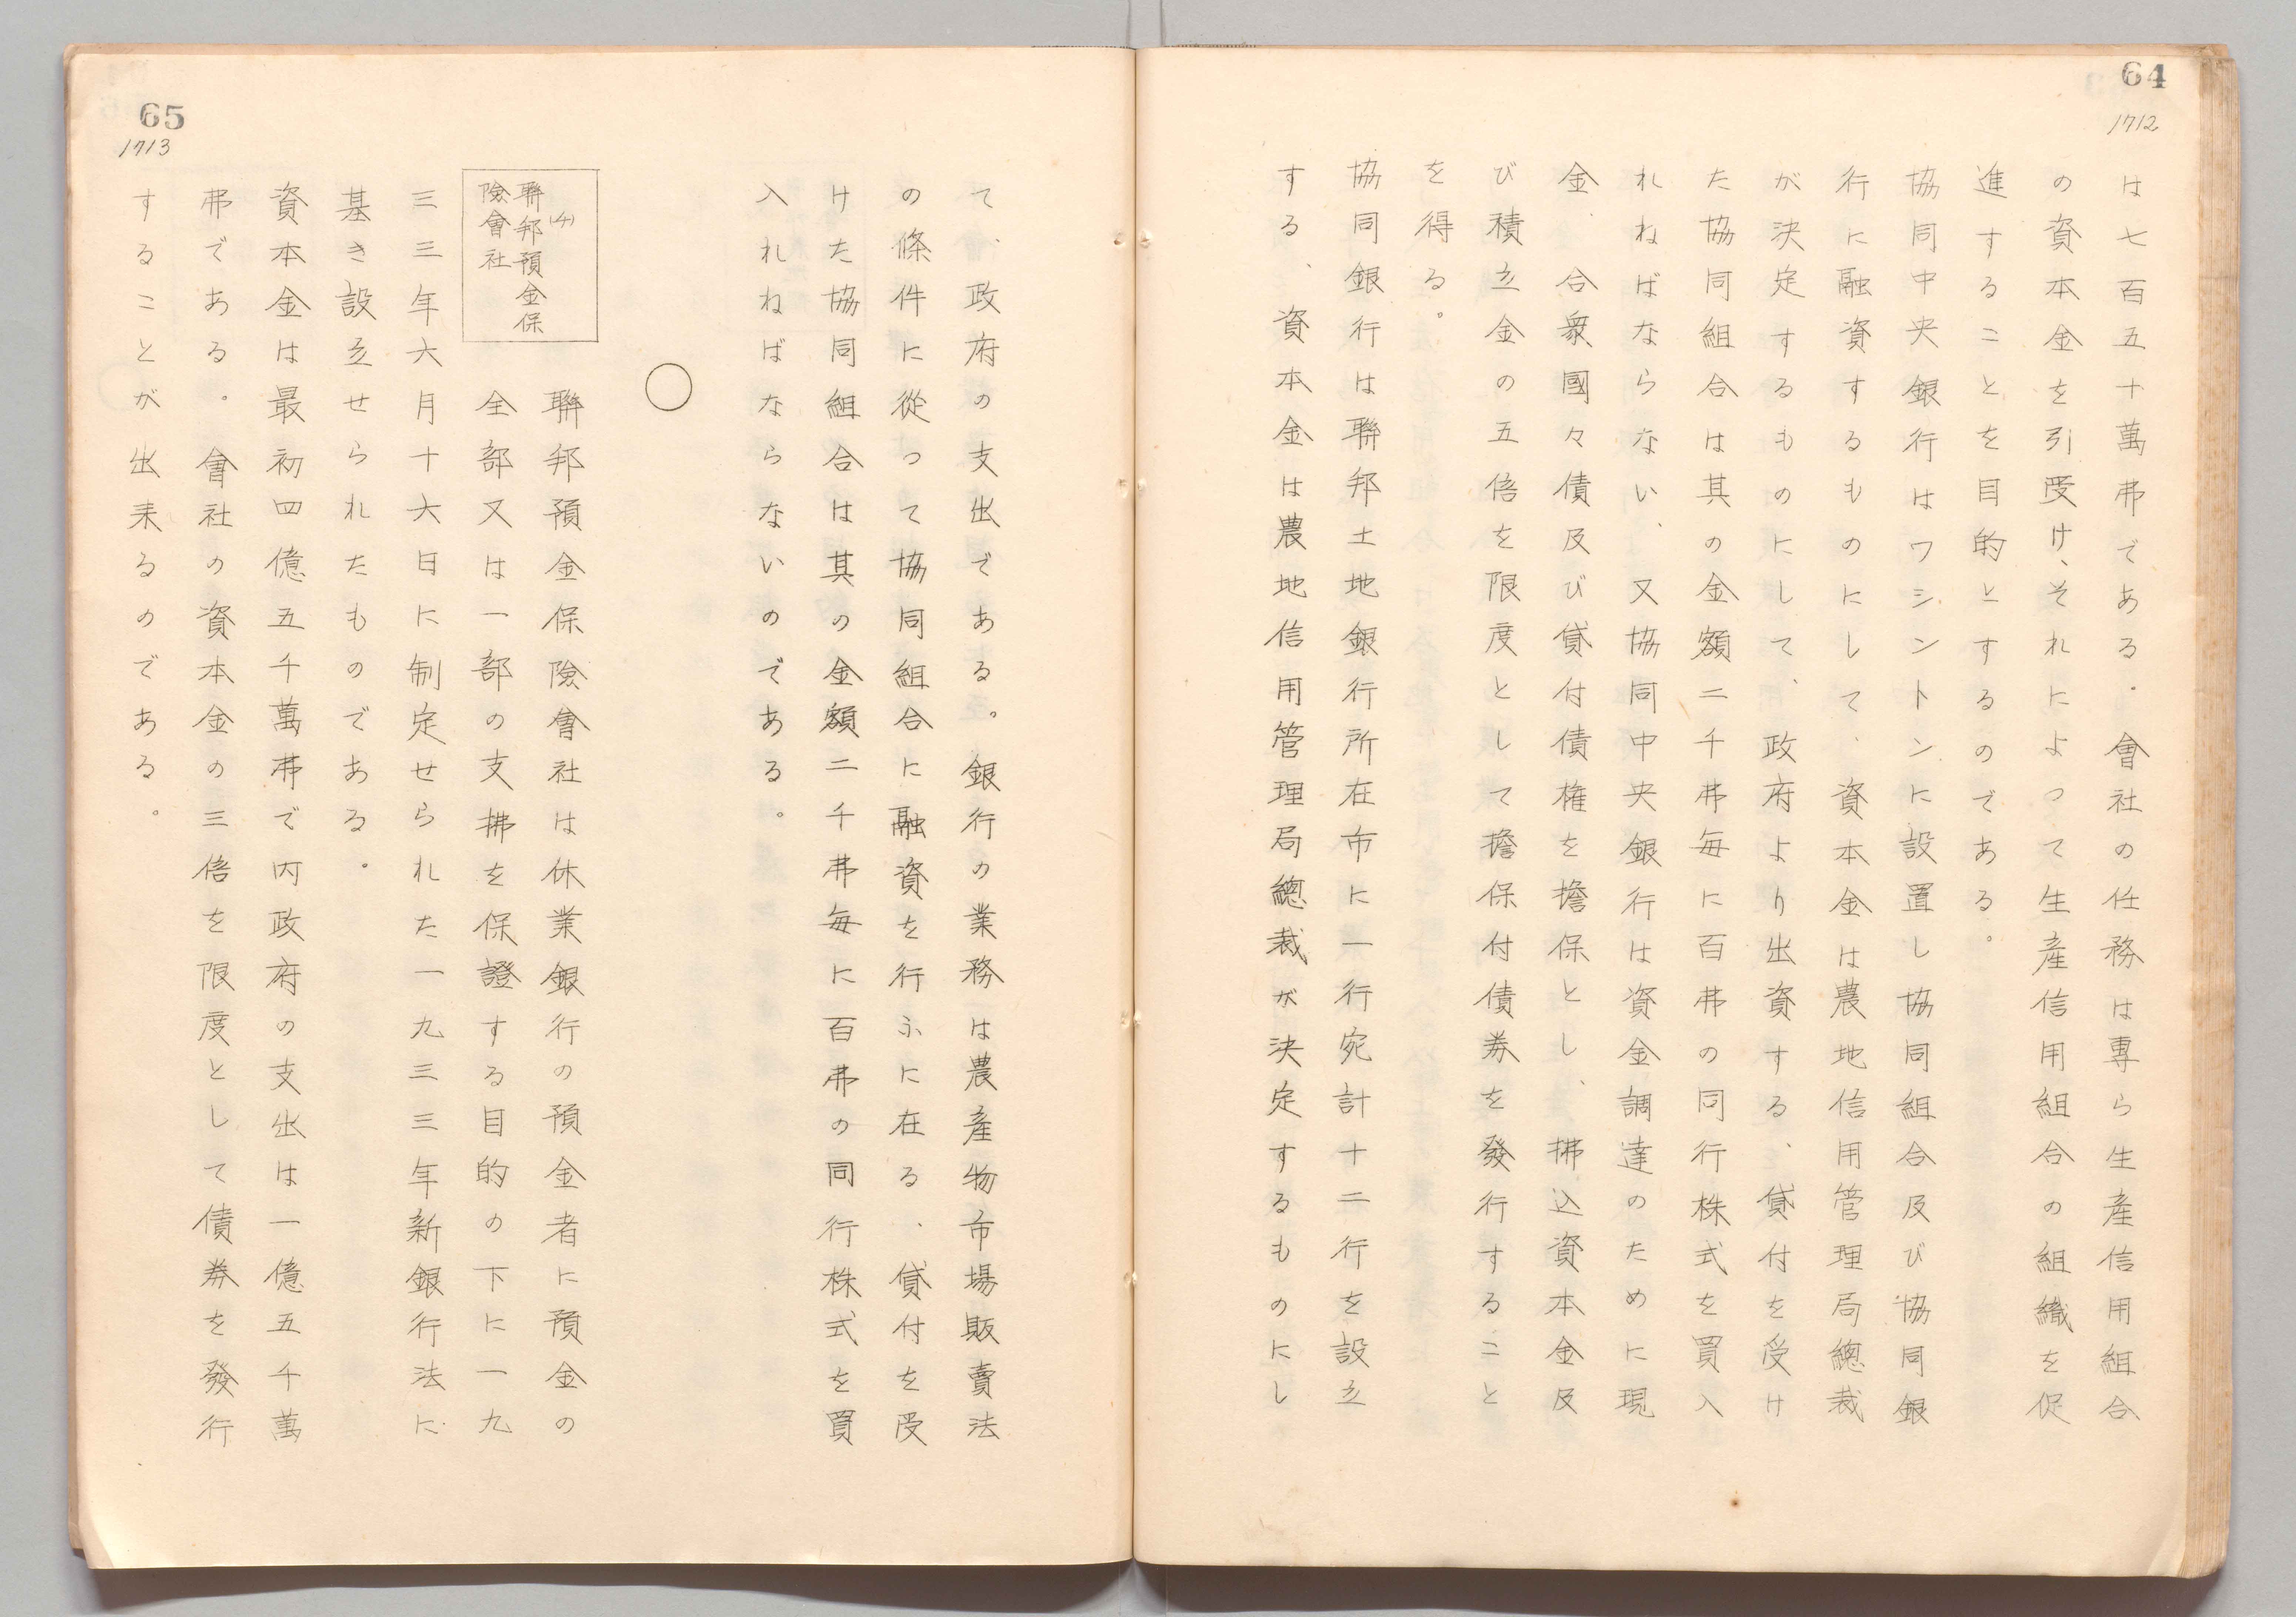 64
1712
は七百五十萬弗である．會社の任務は專ら生産信用組合
の資本金を引受け、それによつて生産信用組合の組織を促
進することを目的とするのである。
協同中央銀行はワシントンに設置し協同組合及び協同銀
行に融資するものにして、資本金は農地信用管理局總裁
が決定するものにして、政府より出資する、貸付を受け
た協同組合は其の金額二千弗毎に百弗の同行株式を買入
れねばならない、又協同中央銀行は資金調達のために現
金、合衆國々債及び貸付債権を擔保とし、拂込資本金及
び積立金の五倍を限度として擔保付債券を發行すること
を得る。
協同銀行は聯邦土地銀行所在市に一行宛計十二行を設立
する、資本金は農地信用管理局總裁が決定するものにし
65
1713
て、政府の支出である。銀行の業務は農産物市場販賣法
の條件に從つて協同組合に融資を行ふに在る、貸付を受
けた協同組合は其の金額二千弗毎に百弗の同行株式を買
入れねばならないのである。
○
(チ)
聯邦預金保
險會社
聯邦預金保險會社は休業銀行の預金者に預金の
全部又は一部の支拂を保證する目的の下に一九
三三年六月十六日に制定せられた一九三三年新銀行法に
基き設立せられたものである。
資本金は最初四億五千萬弗で内政府の支出は一億五千萬
弗である。會社の資本金の三倍を限度として債券を發行
することが出来るのである。